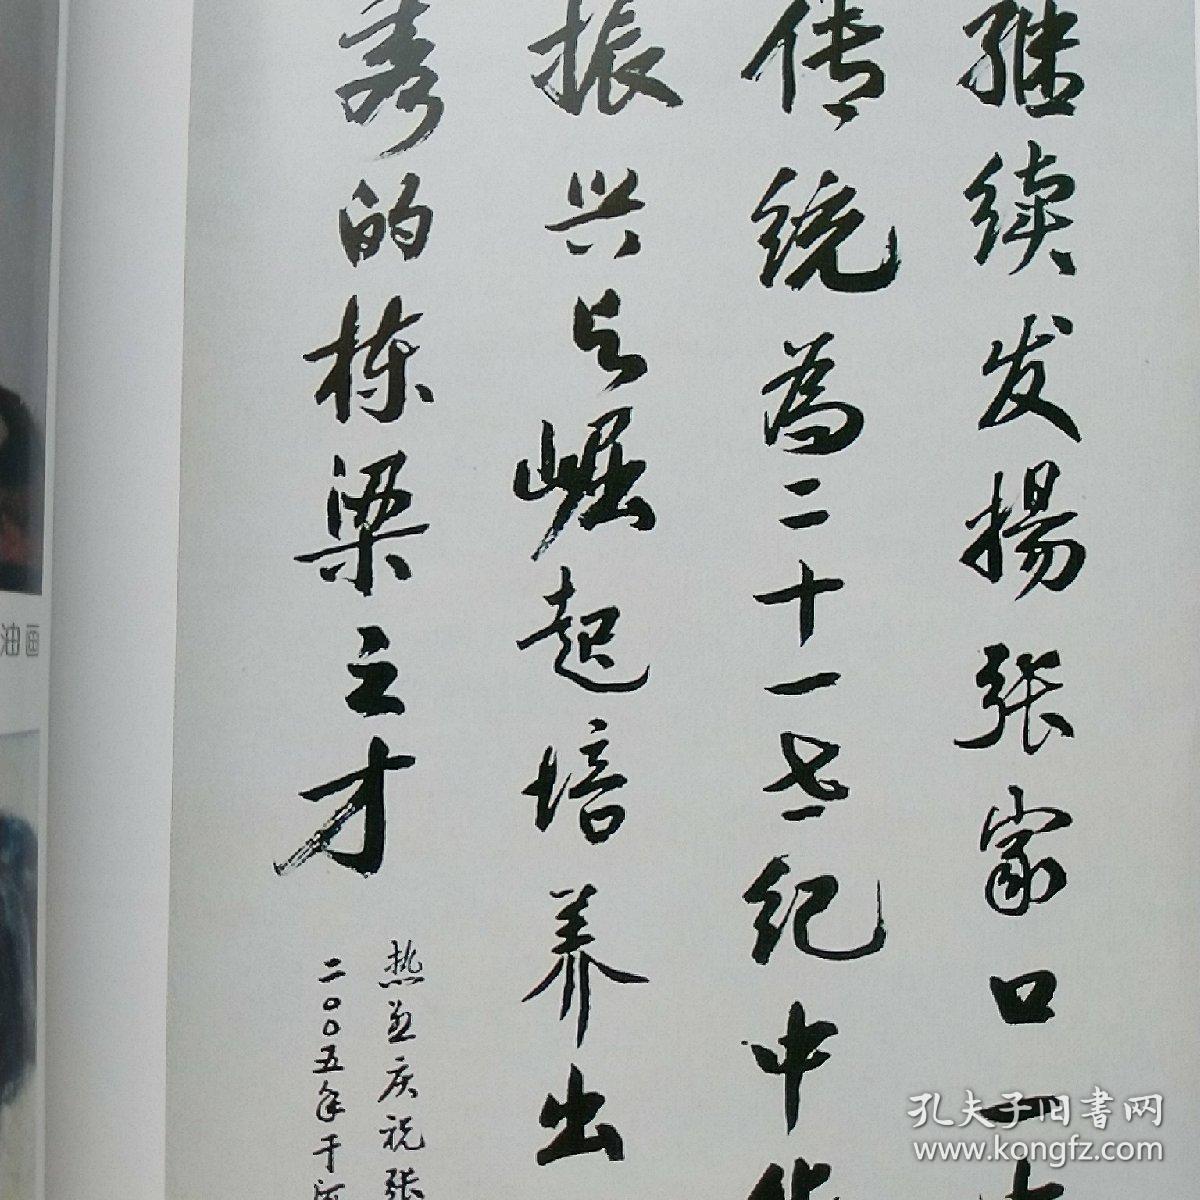 继续发揚张家口一
传统為二十一世纪中华
振兴与崛起培养出
秀的栋梁之才
热烈庆祝张
二〇〇五年于河
油画
孔夫子旧书网
www.kongfz.com